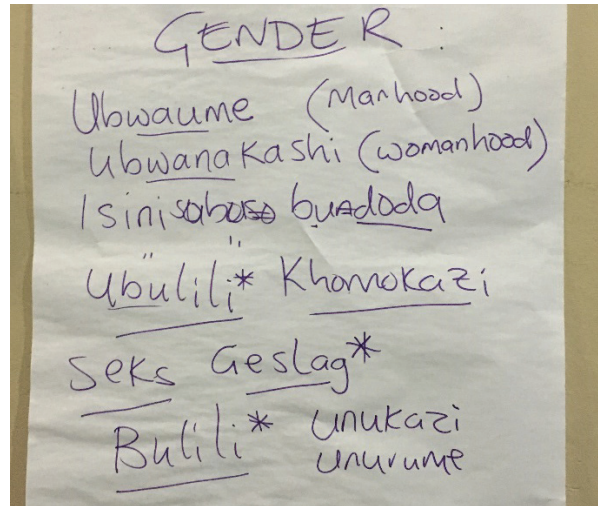 GENDER :
Ubwaume (Manhood)
Ubwanakashi (womanhood)
Isini buadoda
Ubulili* Khomokazi
Seks Geslag*
Bulili* Unukazi
Unurume